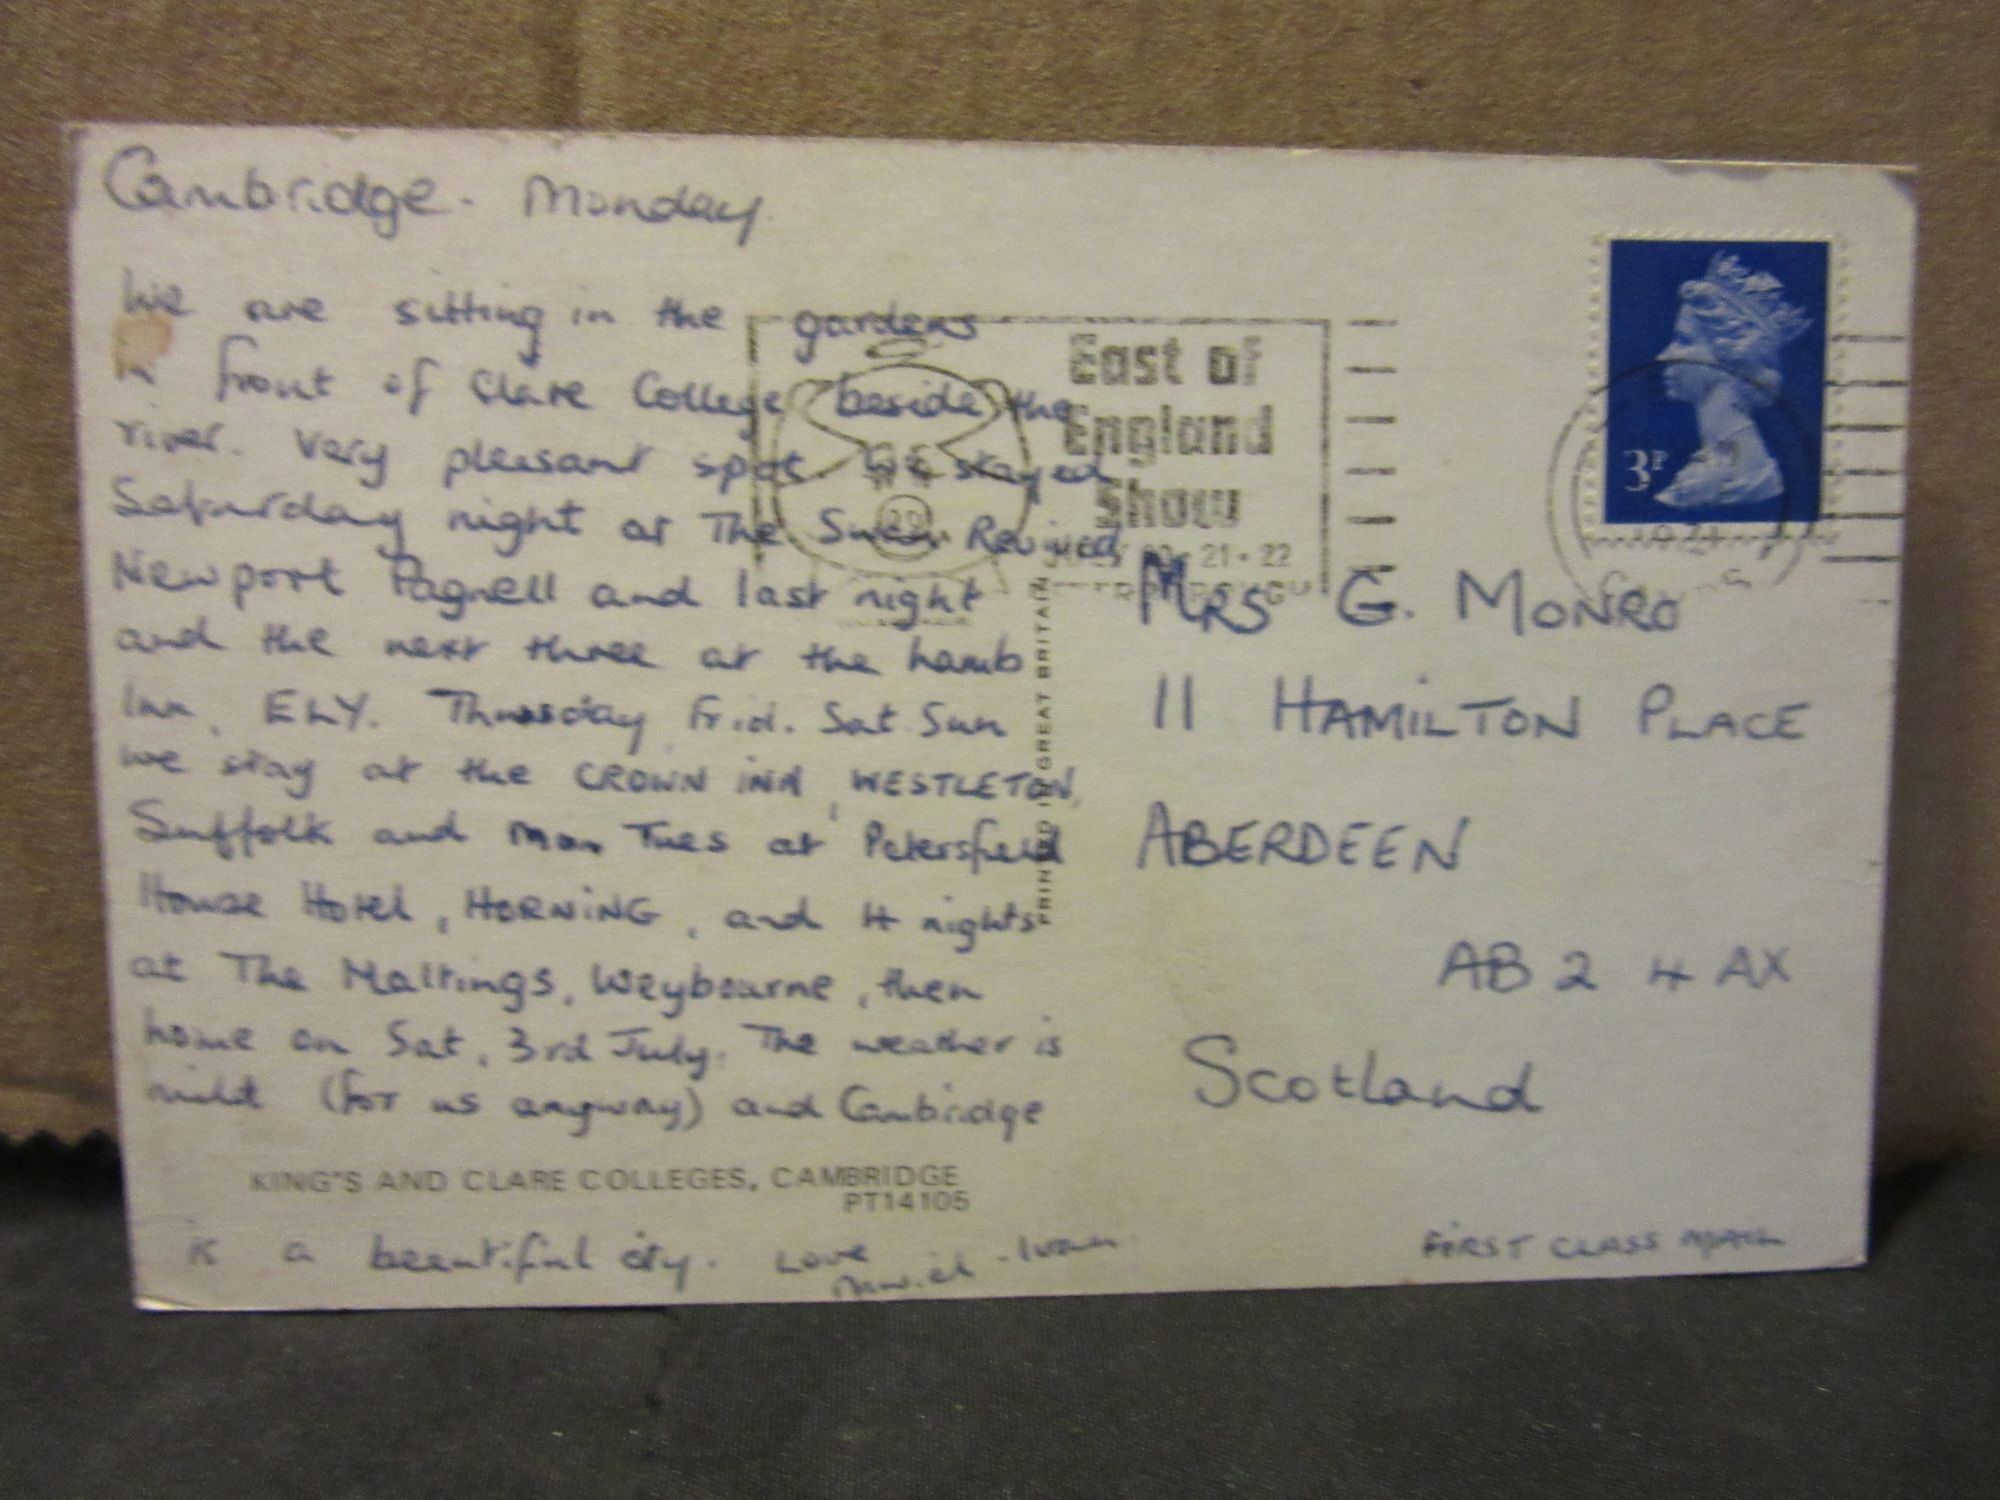 Cambridge. Monday.
We are sitting in the gardens
in front of Clare College beside the
river. Very pleasant spot. We stayed
Saturday night at The Swan Revived
Newport Pagnell and last night
and the next three at the Lamb
Inn, ELY. Thursday, Frid. Sat. Sun
we stay at the CROWN INN, WESTLETON,
Suffolk and Mon Tues at Petersfield
House Hotel, HORNING, and 4 nights
at The Maltings, Weybourne, then
home on Sat, 3rd July. The weather is
mild (for us anyway) and Cambridge
KING'S AND CLARE COLLEGES, CAMBRIDGE
PT14105
is a beautiful city. Love
PRINTED IN GREAT BRITAIN
East of
England
Show
20 · 21 · 22
3P
MRS G. MONRO
11 HAMILTON PLACE
ABERDEEN
AB2 4AX
Scotland
FIRST CLASS MAIL